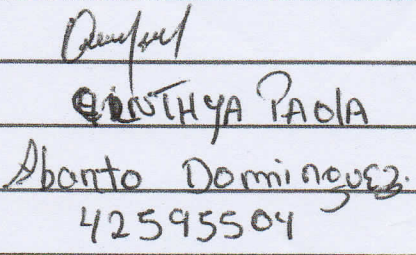 CINTHYA PAOlA
Abanto Dominguez.
42595504